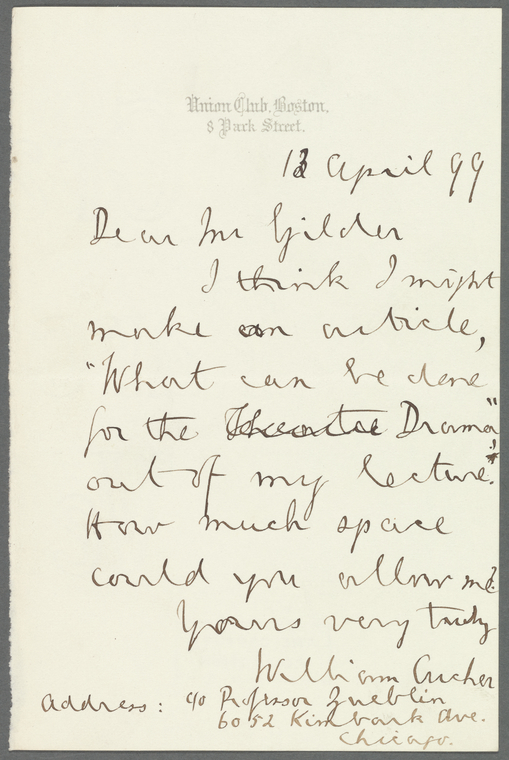 Union Club, Boston.
8 Park Street.
13 April 99
Dear Mr Gilder
I think I might
make an article,
"What can be done
for the Theatre Drama"
out of my lecture.*
How much space
could you allow me?
Yours very truly
William Archer
Address: c/o Professor Zueblin
6052 Kimbark Ave.
Chicago.